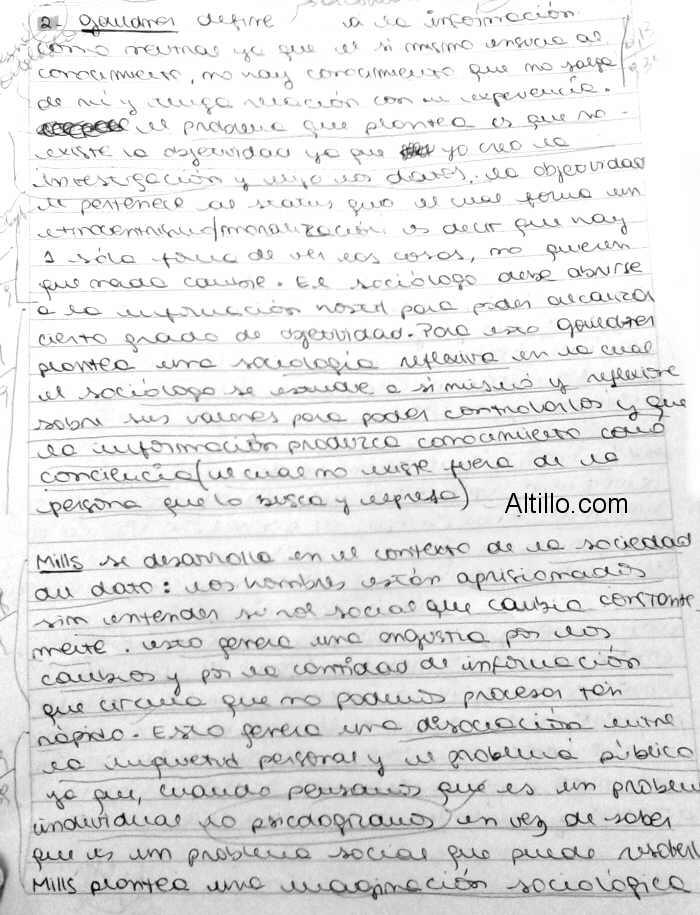 2- Gouldner define a la información
como neutral ya que el si mismo enuncia al
conocimiento, no hay conocimiento que no salga
de mi y tenga relación con mi experiencia.
el problema que plantea es que no
existe la objetividad ya que yo creo la
investigación y elijo los datos. La objetividad
le pertenece al status quo el cual forma un
etnocentrismo/moralización es decir que hay
1 sóla forma de ver las cosas, no quieren
que nada cambie. El sociólogo debe abrirse
a la información hostil para poder alcanzar
cierto grado de objetividad. Para esto Gouldner
plantea una sociología reflexiva en la cual
el sociólogo se estudie a si mismo y reflexione
sobre sus valores para poder controlarlos y que
la información produzca conocimiento como
conciencia (el cual no existe fuera de la
persona que lo busca y expresa)
Altillo.com
Mills se desarrolla en el contexto de la sociedad
del dato: los hombres están aprisionados
sin entender su rol social que cambia constante
mente. esto genera una angustia por los
cambios y por la cantidad de información
que circula que no podemos procesar tan
rápido. Esto genera una desociación entre
la inquietud personal y el problema público
ya que, cuando pensamos que es un problem
individual lo psicologizamos en vez de saber
que es un problema social que puede
Mills plantea una imaginación sociológica